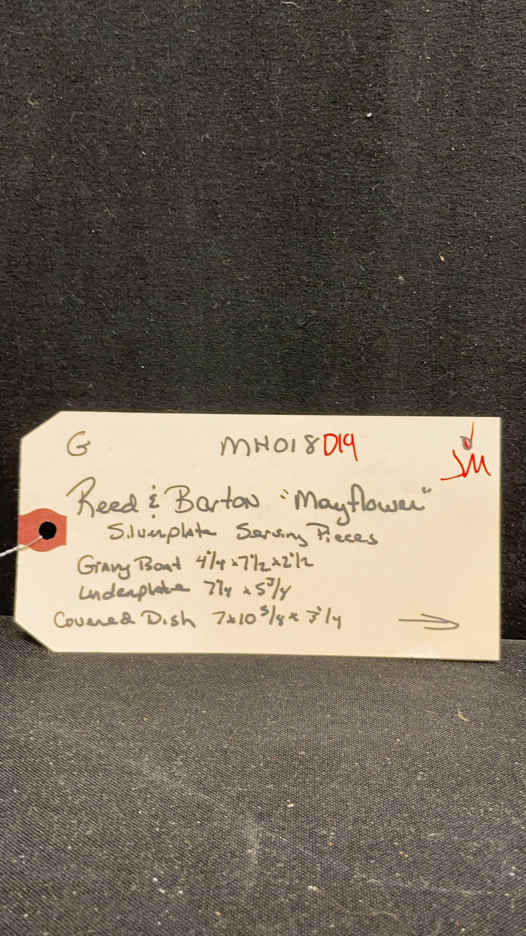 G MH018D19 d
JM
Reed & Barton "Mayflower"
Silverplate Serving Pieces
Gravy Boat 4 1/4 x 7 1/2 x 2 1/2
Underplate 7 1/4 x 5 3/8
Covered Dish 7 x 10 5/8 x 3 1/4 →